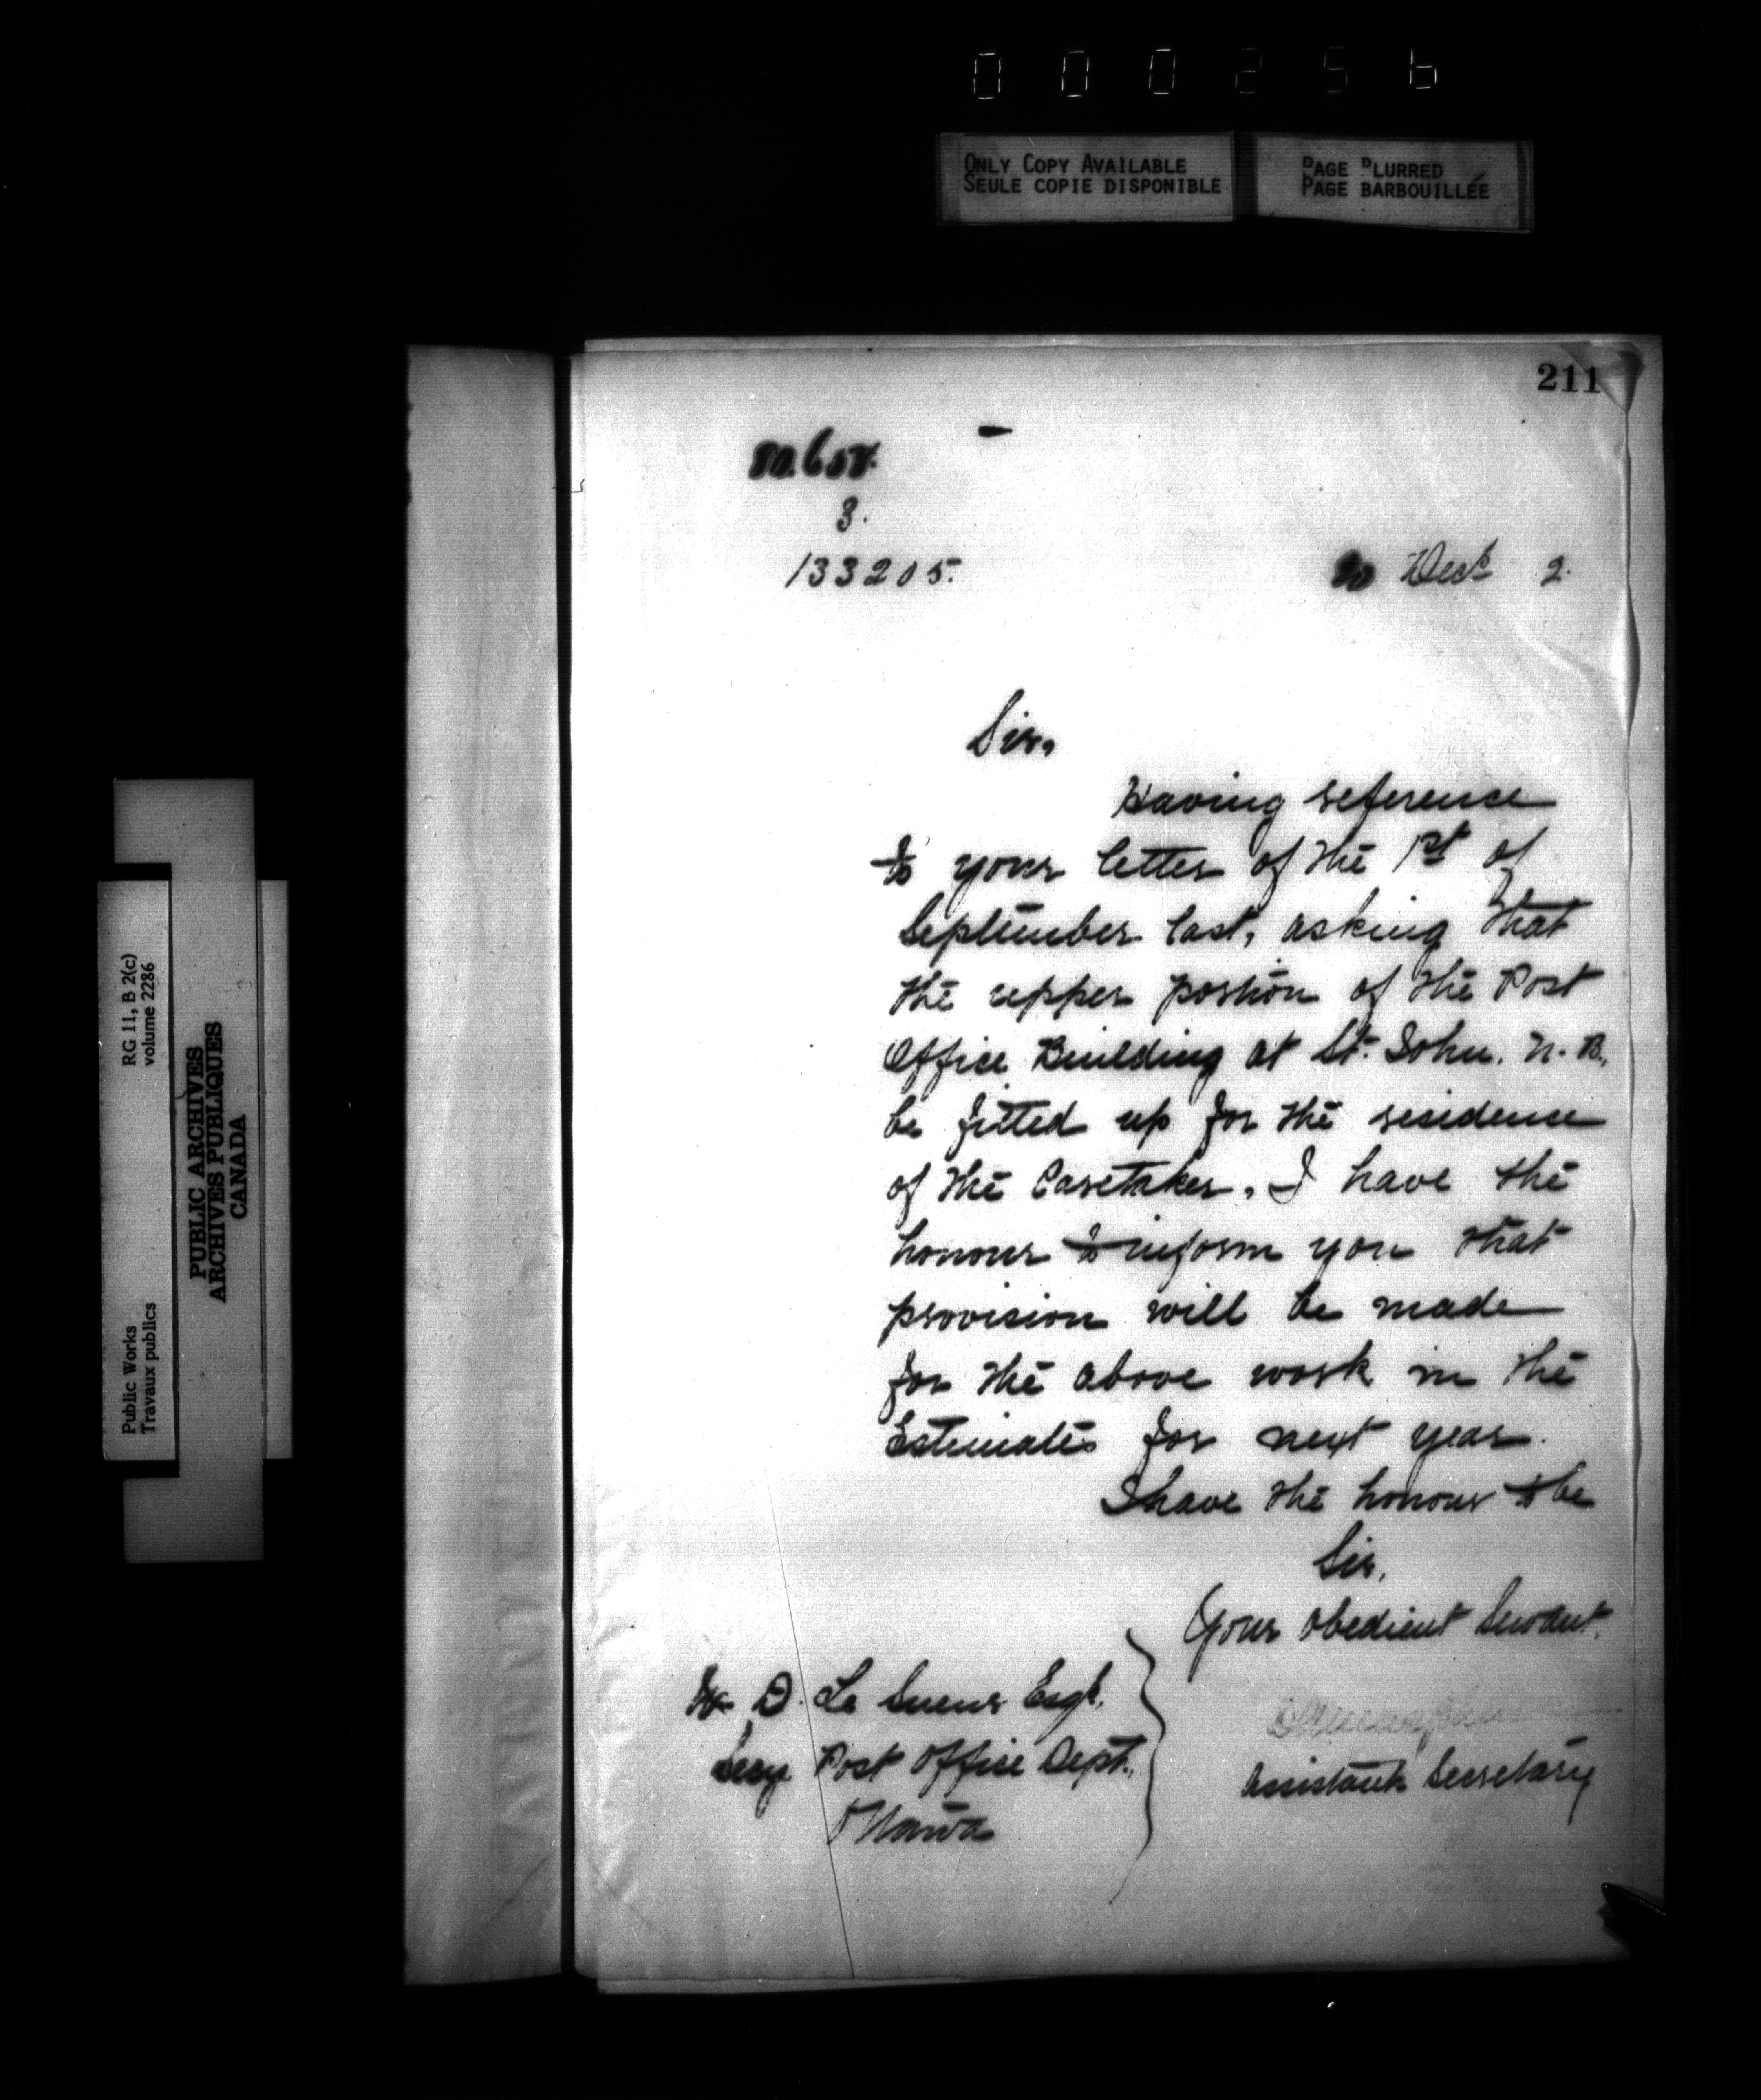 000256
ONLY COPY AVAILABLE
SEULE COPIE DISPONIBLE
PAGE BLURRED
PAGE BARBOUILLÉE
211
3.
133205.
20 Decr 2.
Sir,
Having reference
to your letter of the 1st of
September last, asking that
the upper portion of the Post
Office Building at St. John. N. B.,
be fitted up for the residence
of the Caretaker, I have the
honour to inform you that
provision will be made
for the above work in the
Estimates for next year.
I have the honour to be
Sir,
Your obedient Servant.
W. D. Le Sueur Esqr.
Secy. Post Office Dept.,
Ottawa
Assistant Secretary
RG 11, B 2(c)
volume 2286
Public Works
Travaux publics
PUBLIC ARCHIVES
ARCHIVES PUBLIQUES
CANADA